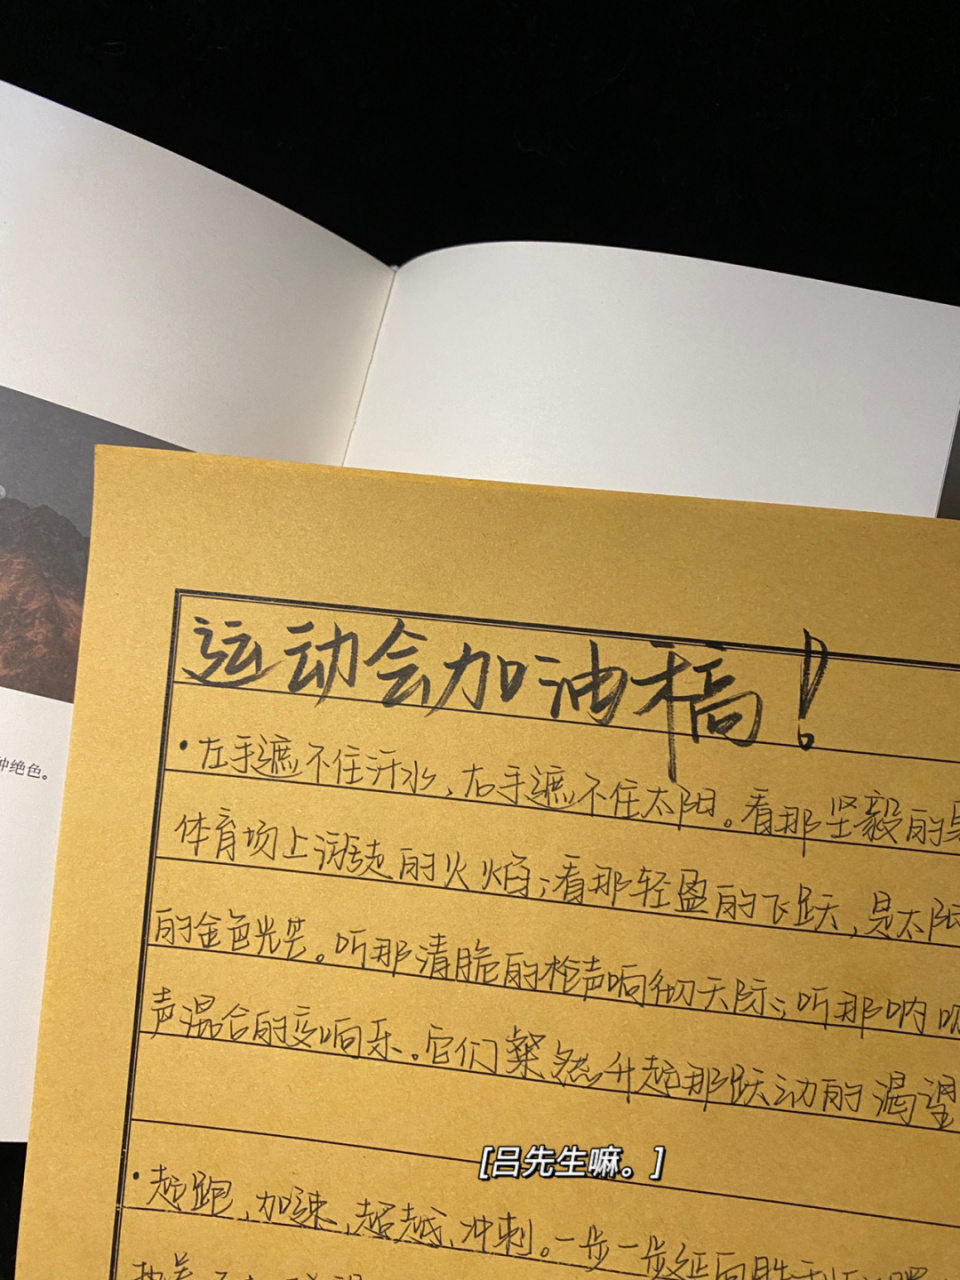 种绝色。
运动会加油稿！
·左手遮不住汗水，右手遮不住太阳。看那坚毅的
体育场上滚烫的火焰；看那轻盈的飞跃，是太阳
的金色光芒。听那清脆的枪声响彻天际；听那呐
声混合的交响乐。它们粲然升起那跃动的渴望
[吕先生嘛。]
·起跑，加速，超越，冲刺。一步一步延向胜利